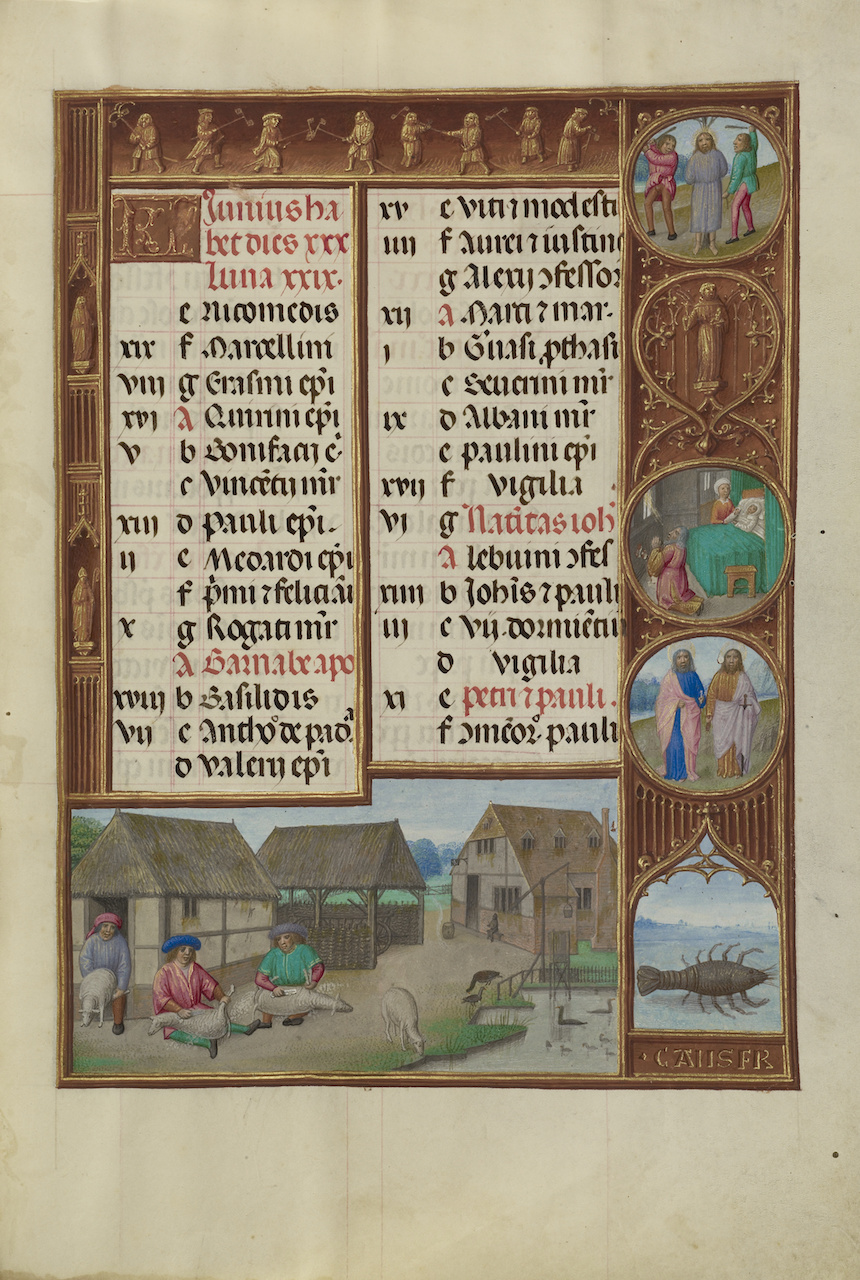 KL Iunius ha
bet dies xxx
Luna xxix.
e Nicomedis
xix f Marcellini
viii g Erasmi epi
xvi A Quirini epi
v b Bonifacij e
c Vincetij mr
xiii d Pauli epi.
ii e Medardi epi
f pmi ⁊ felicia
x g Rogati mr
A Barnabe apo
xviii b Basilidis
vii c Antho de pad
d Valerij epi
xv e Viti ⁊ modesti
iiii f Aurei ⁊ iustine
g Alexij ɔfessor
xii A Marci ⁊ mar.
i b Guasi pthasi
c Seuerini mr
ix d Albani mr
e Paulini epi
xvii f vigilia
vi g Natitas ioh
A lebuini ɔfes
xiiii b Iohis ⁊ pauli
iii c Vij. dormietiu
d vigilia
xi e petri ⁊ pauli.
f ɔmeor. pauli
CANSER